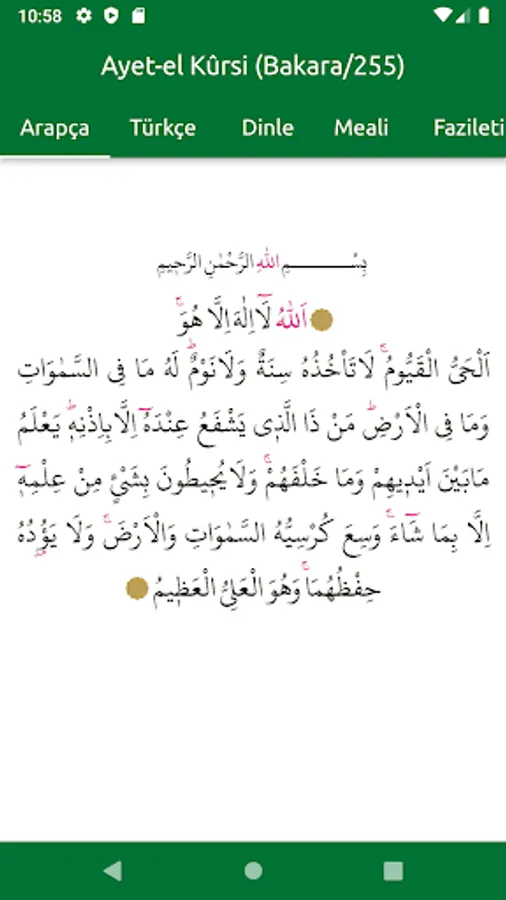 10:58
Ayet-el Kûrsi (Bakara/255)
Arapça Türkçe Dinle Meali Fazileti
بِسْــــــــــمِ اللّٰهِ الرَّحْمٰنِ الرَّحٖيمِ
اَللّٰهُ لَٓا اِلٰهَ اِلَّا هُوَۚ
اَلْحَیُّ الْقَیُّومُۚ لَا تَاْخُذُهُ سِنَةٌ وَلَا نَوْمٌؕ لَهُ مَا فِی السَّمٰوَاتِ
وَمَا فِی الْاَرْضِؕ مَنْ ذَا الَّذٖی یَشْفَعُ عِنْدَهُٓ اِلَّا بِاِذْنِهٖؕ یَعْلَمُ
مَا بَیْنَ اَیْدٖیهِمْ وَمَا خَلْفَهُمْۚ وَلَا یُحٖیطُونَ بِشَیْءٍ مِنْ عِلْمِهٖٓ
اِلَّا بِمَا شَٓاءَۚ وَسِعَ كُرْسِیُّهُ السَّمٰوَاتِ وَالْاَرْضَۚ وَلَا یَؤُ۫دُهُ
حِفْظُهُمَاۚ وَهُوَ الْعَلِیُّ الْعَظٖیمُ